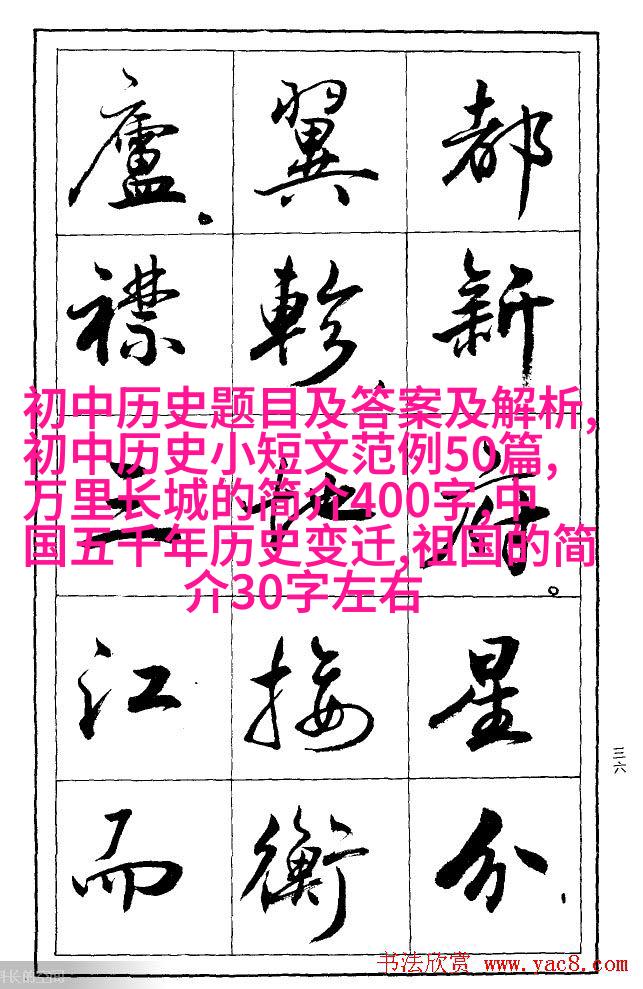 都新府。星分、
翼軫、地接衡
廬。襟三江而
初中历史题目及答案及解析,
初中历史小短文范例50篇,
万里长城的简介400字,中
国五千年历史变迁,祖国的简
介30字左右
三六
书法欣赏 www.yac8.com
长的空间